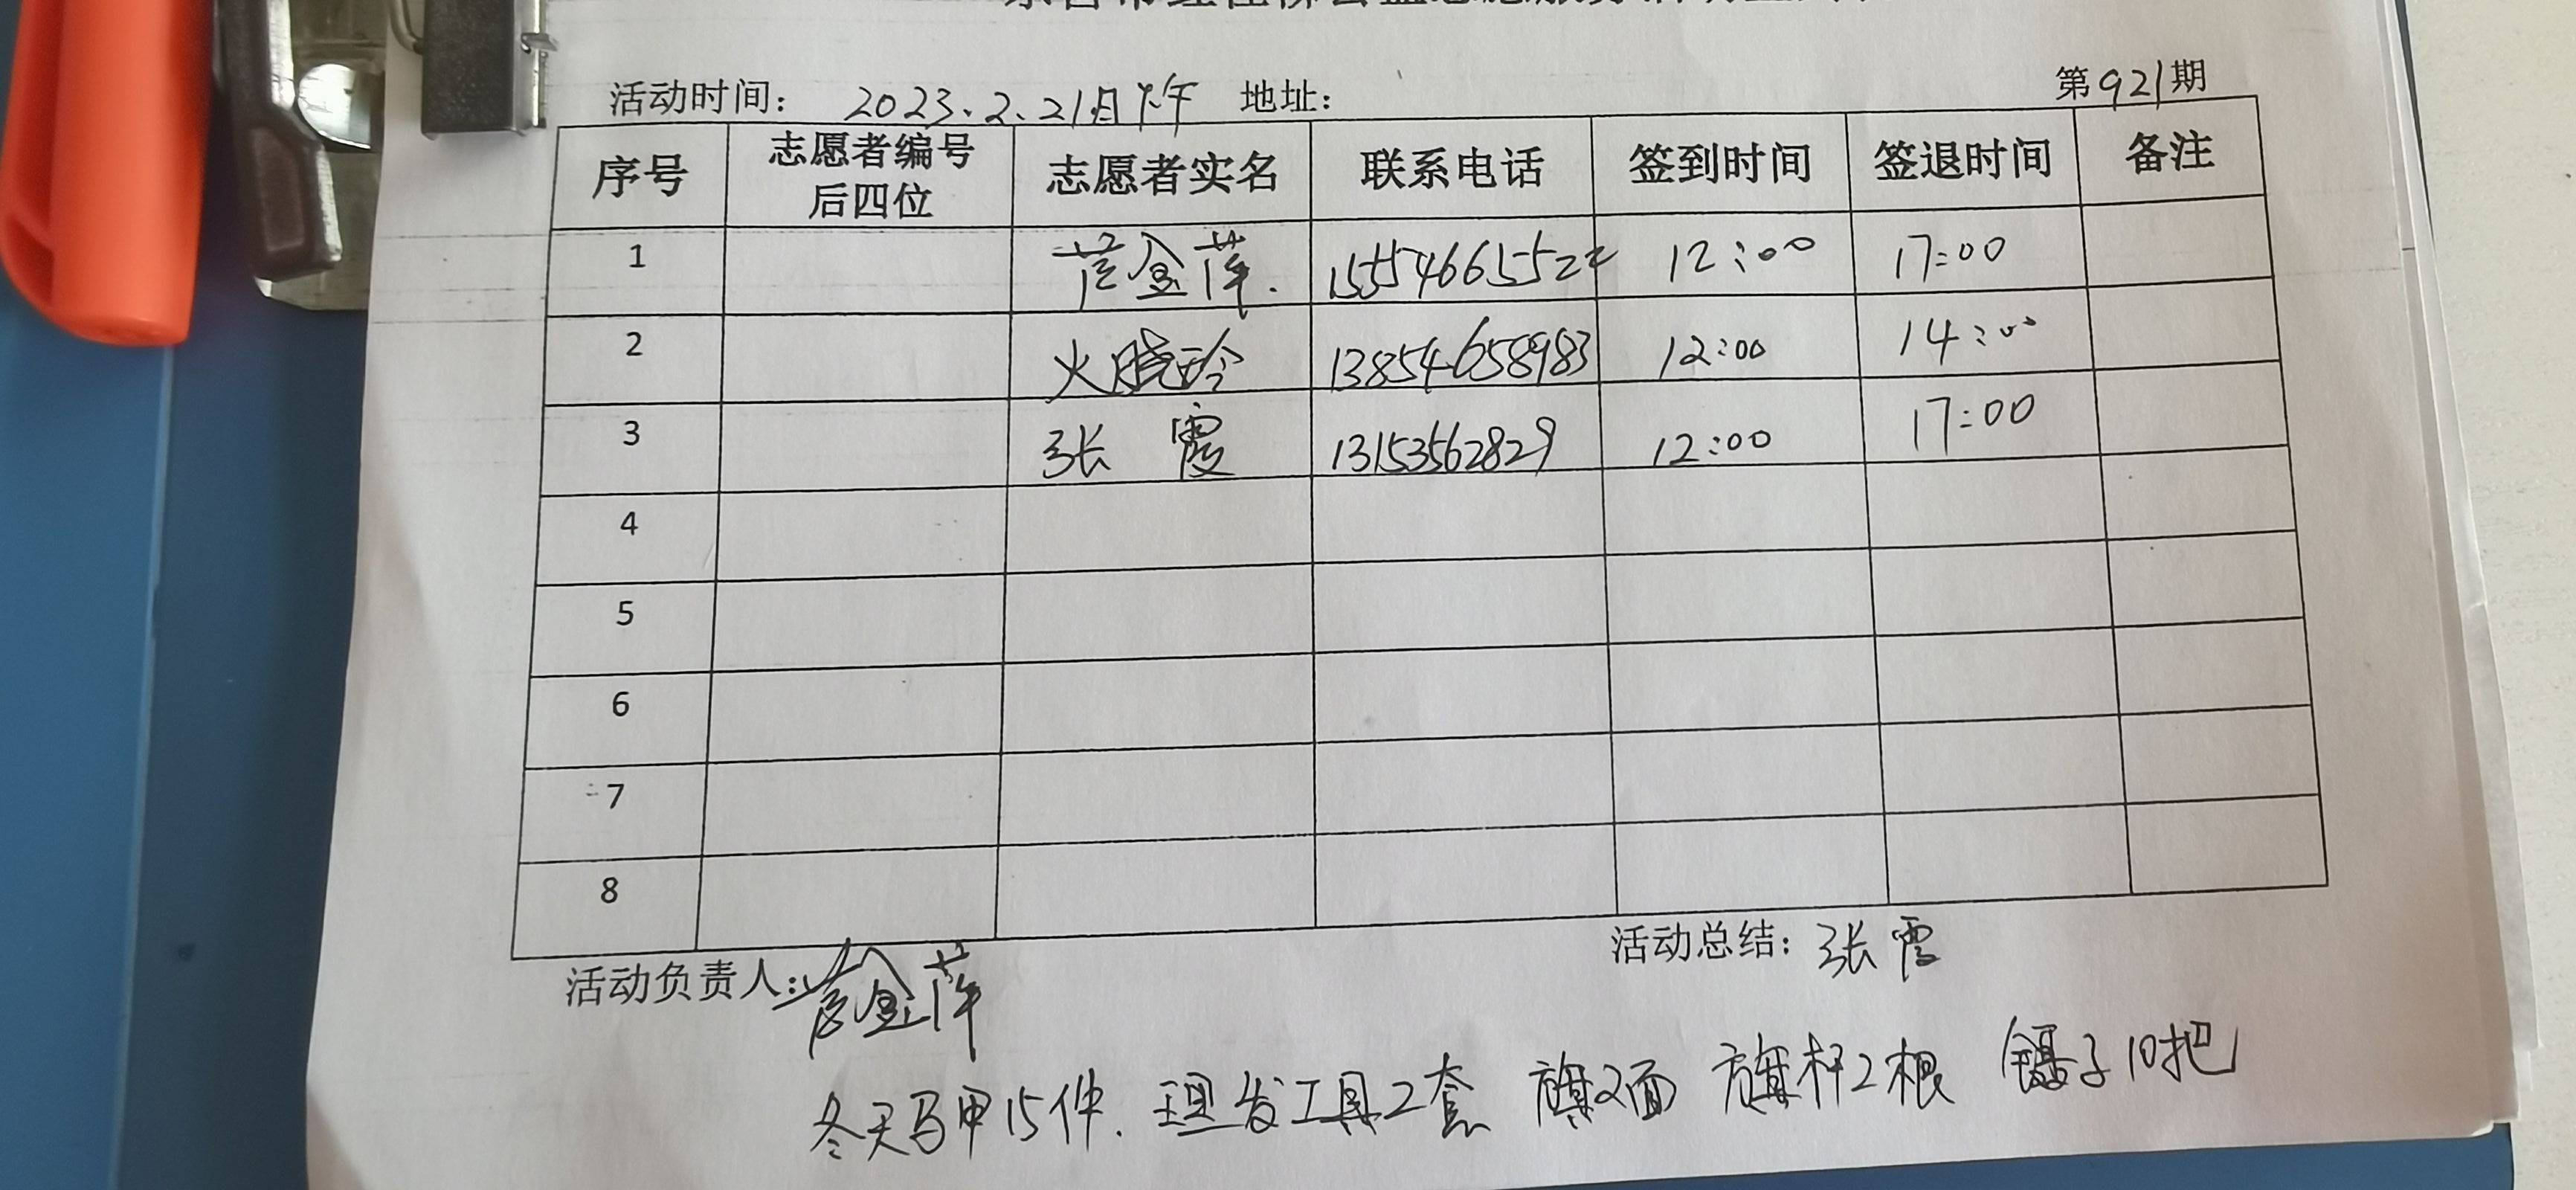 活动时间： 2023.2.21日下午 地址： 第921期
序号 志愿者编号后四位 志愿者实名 联系电话 签到时间 签退时间 备注
1 金萍. 12:00 17:00
2 火晓玲 13854658983 12:00 14:00
3 张霞 13153562829 12:00 17:00
4
5
6
7
8
活动负责人： 金萍 活动总结：张霞
冬天马甲15件. 理发工具2套 旗2面 旗杆2根 镊子10把